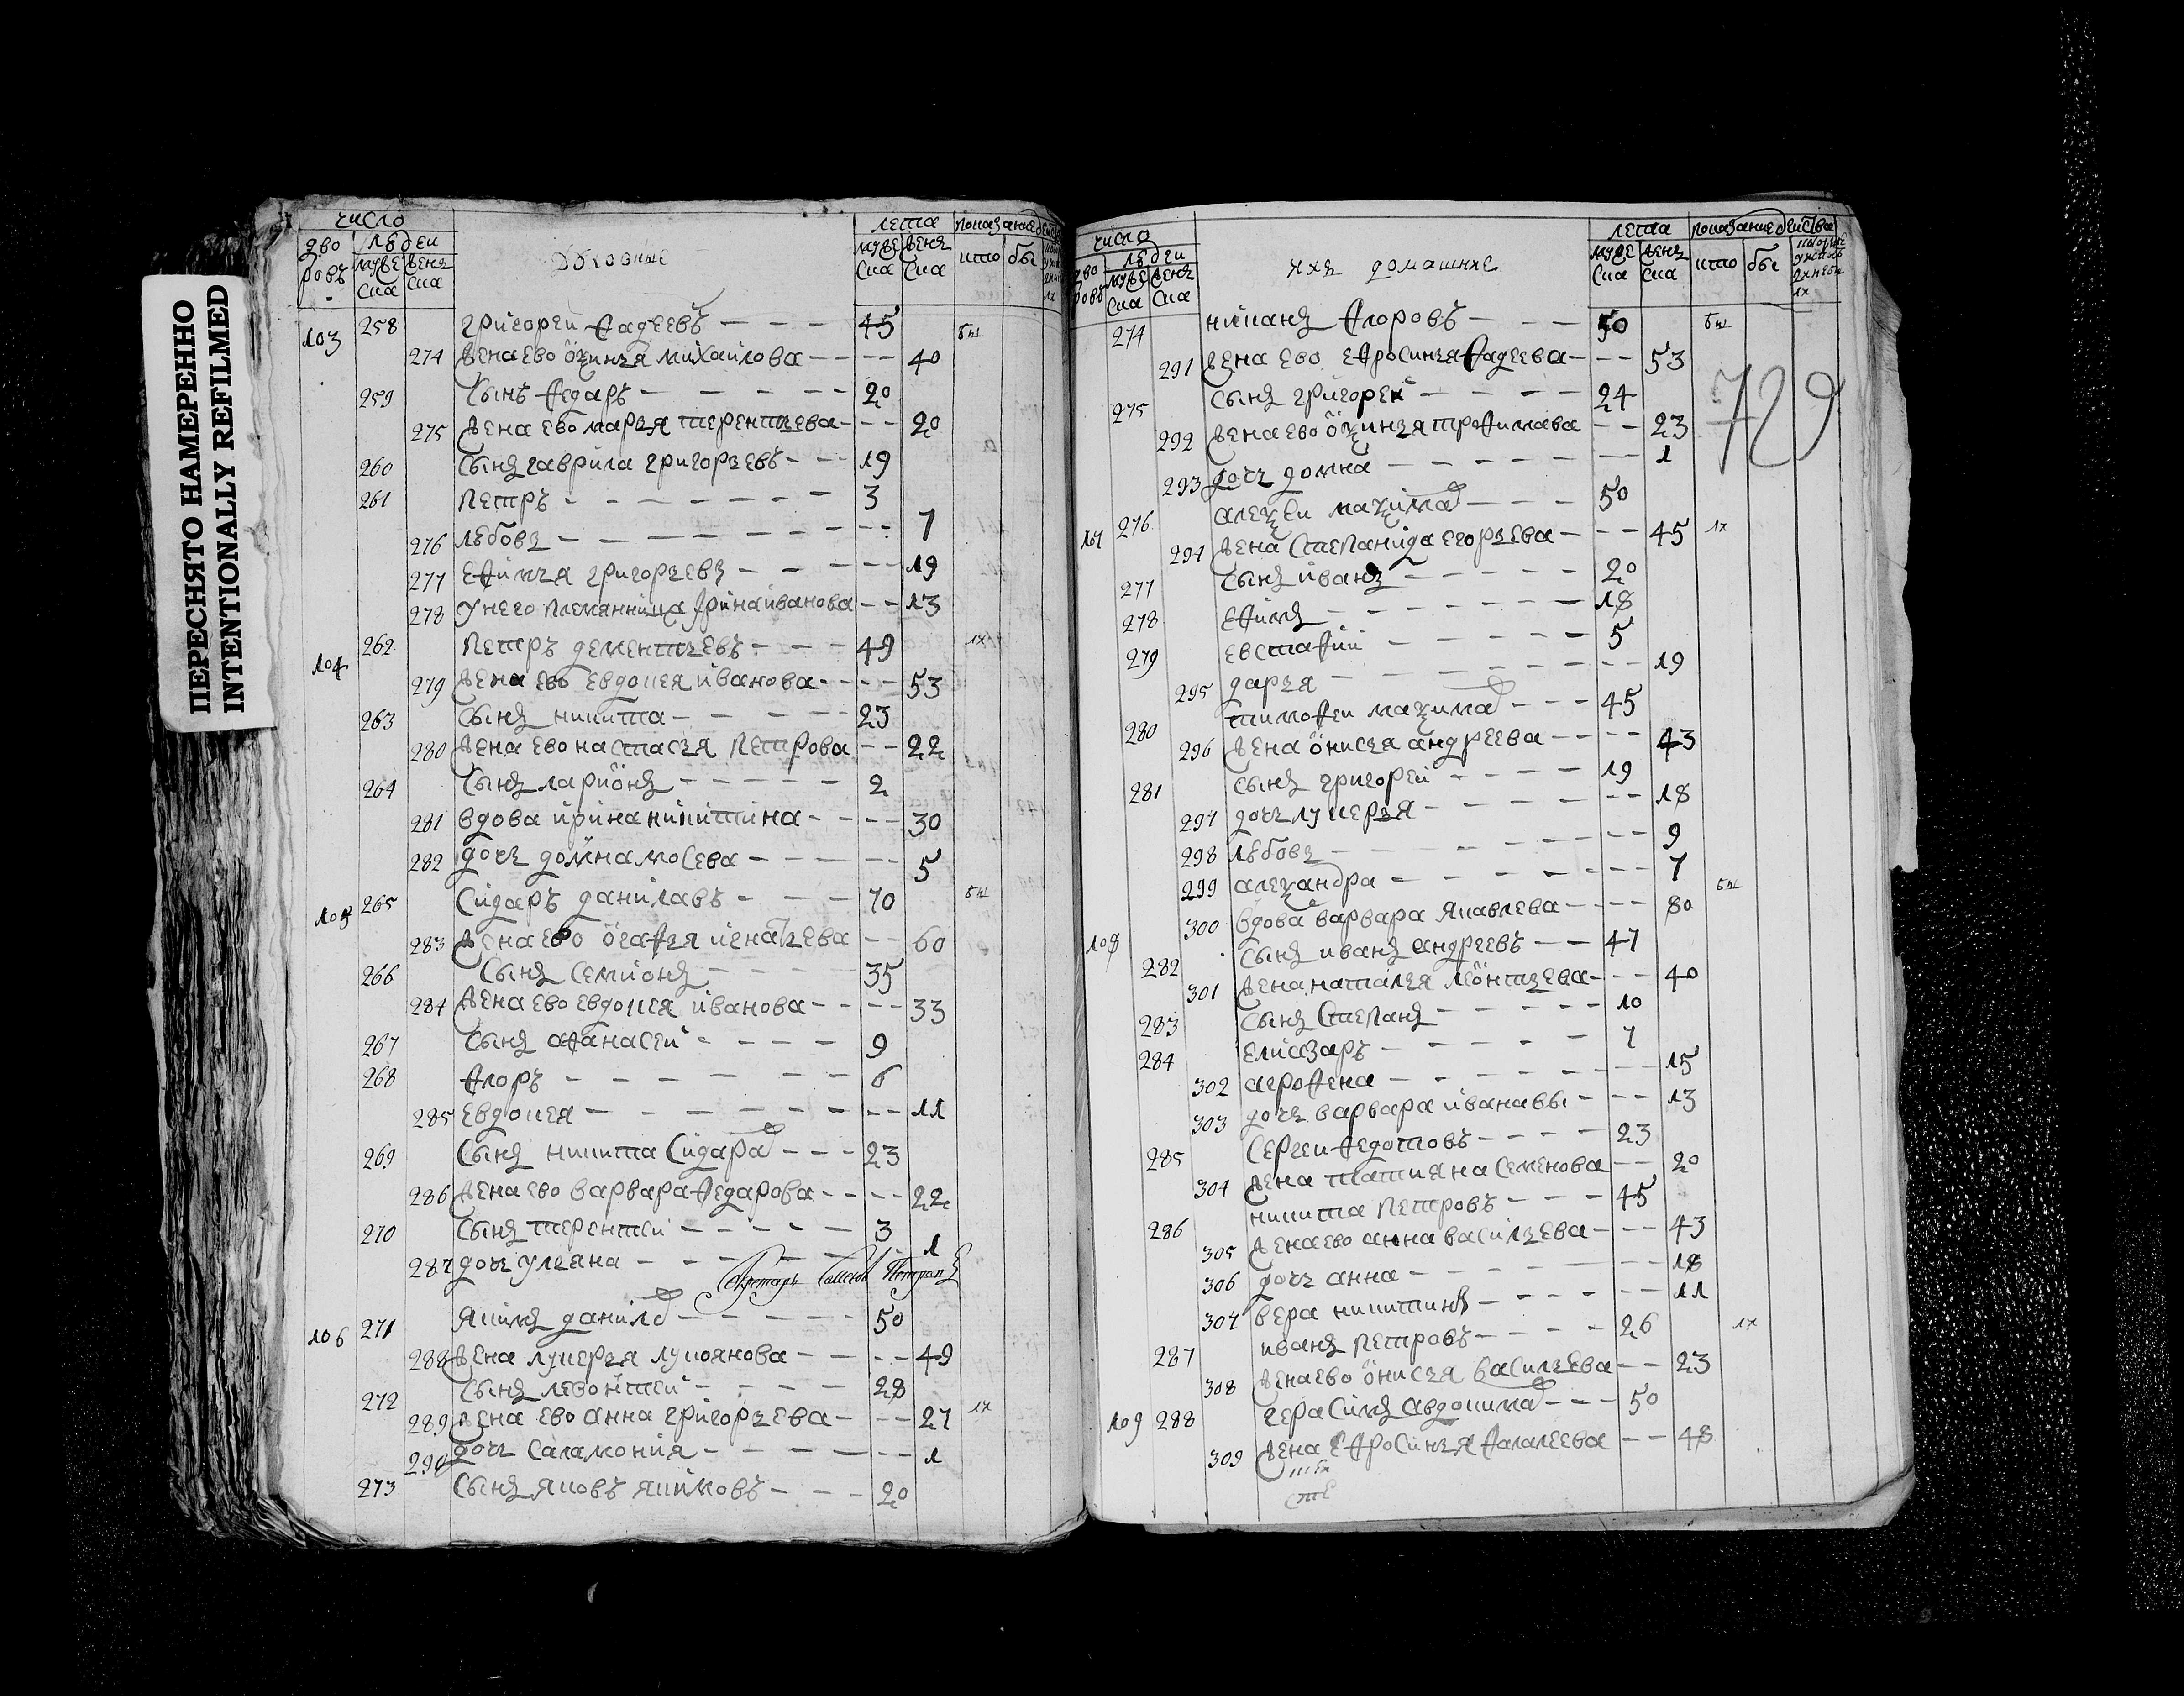 ПЕРЕСНЯТО НАМЕРЕННО
INTENTIONALLY REFILMED
число лета показание действа
дво людеи Духовные муже женз што бы
ровъ муже женз ска ска
ска ска
103 258 григореи Фадеевъ 45 бы
274 жена ево ѯинья михаилова 40
259 сынъ Федаръ 20
275 жена ево марья терентьева 20
260 сынъ гаврила григорьевъ 19
261 петръ 3
276 любовь 7
277 еФимья григорьевъ 19
278 у него племянница Ирина иванова 13
104 262 петръ дементьевъ 49 их
279 жена ево евдокея иванова 53
263 сынъ никита 23
280 жена ево настасья петрова 22
264 сынъ ларионъ 2
281 вдова ирина никитина 30
282 дочь домна мосева 5
105 265 сидаръ данилавъ 70 бы
283 жена ево огаФья игнатьева 60
266 сынъ семионъ 35
284 жена ево евдокея иванова 33
267 сынъ аФанасеи 9
268 Флоръ 6
285 евдокея 11
269 сынъ никита сидарав 23
286 жена ево варвара Федарова 22
270 сынъ терентеи 3
287 дочь ульяна 1
106 271 якимъ данилов 50
288 жена лукерья лукоянова 49
272 сынъ левонтеи 28
289 жена ево анна григорьева 27 их
290 дочь саламония 1
273 сынъ яковъ якимовъ 20
число лета показание действа
дво людеи ихъ домашние муже женз што бы
ровъ муже женз ска ска
ска ска
274 никанъ Флоровъ 50 бы
291 жена ево еФросинья Фадеева 53
729
275 сынъ григореи 24
292 жена ево оѯинья троФимава 23
293 дочь домна 1
107 276 алеѯеи маѯимав 50
294 жена степанида егорьева 45 их
277 сынъ иванъ 20
278 еФимъ 18
279 евстаФии 5
295 дарья 19
280 тимоФеи маѯимав 45
296 жена онисья андреева 43
281 сынъ григореи 19
297 дочь лукерья 18
298 любовь 9
299 алеѯандра 7
300 вдова варвара яковлева 80 бы
108 282 сынъ иванъ андреевъ 47
301 жена наталья леонтьева 40
283 сынъ степанъ 10
284 елисзаръ 7
302 агроФена 15
303 дочь варвара иванавы 13
285 сергеи Федотовъ 23
304 жена татияна семенова 20
286 никита петровъ 45
305 жена ево анна васильева 43
306 дочь анна 18
307 вера никитины 11
287 иванъ петровъ 26 их
308 жена ево онисья васильева 23
109 288 герасимъ авдокимав 50
309 жена еФросинья Фалалеева 48